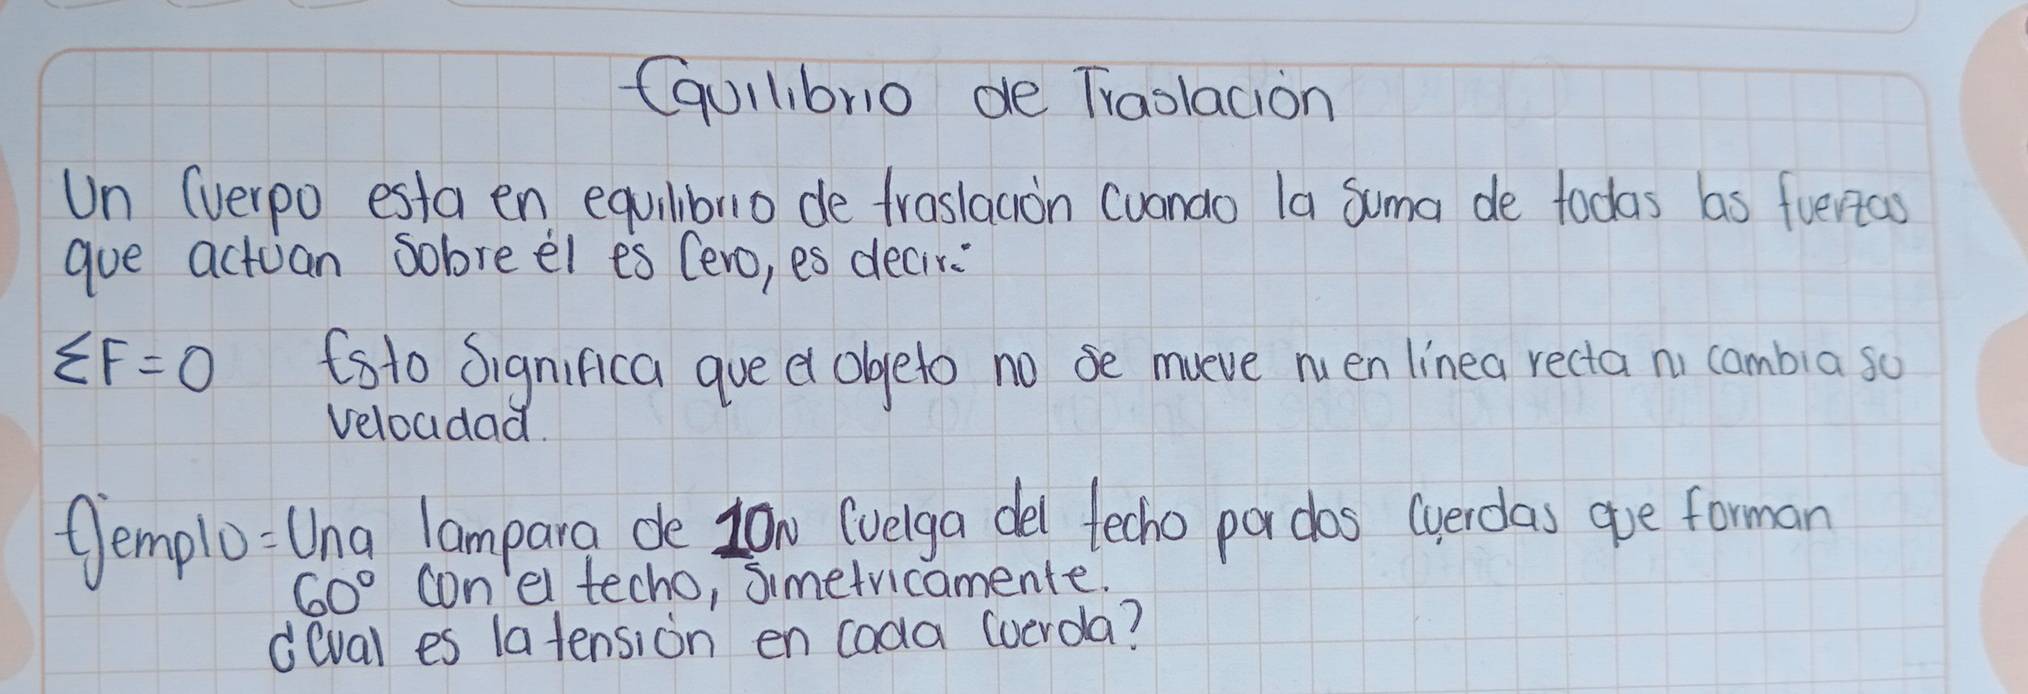 Equilibrio de Traslación
Un Cuerpo esta en equilibrio de traslación cuando la suma de todas las fuerzas
que actúan sobre él es Cero, es decir:
ΣF=0 Esto Significa que el objeto no se mueve ni en línea recta ni cambia su
velocidad.
Ejemplo=Una lampara de 10N Cuelga del techo por dos Cuerdas que forman
60° con el techo, simetricamente.
¿Cual es la tensión en cada Cuerda?